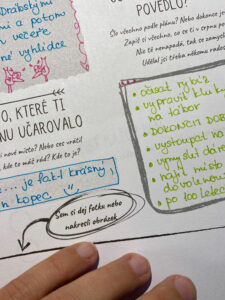 Drábským
i a potom
večeře
né vyhlídce
O, KTERÉ TI
NU UČAROVALO
nové místo? Nebo ses vrátil
kde to máš rád? Kde to je?
... je fakt krásný
kopec.
Sem si dej fotku nebo
nakresli obrázek
POVEDLO?
Šlo všechno podle plánu? Nebo dokonce je
Zapiš si všechno, co se ti v srpnu po
Nic tě nenapadá, tak se zamysl
Udělal jsi třeba někomu rados
očesat rybíz
vypravit kluk
na tábor
DOKONČIT DOB
vystoupat na
vymyslet dáre
najít místo
do volného
po 100 letec